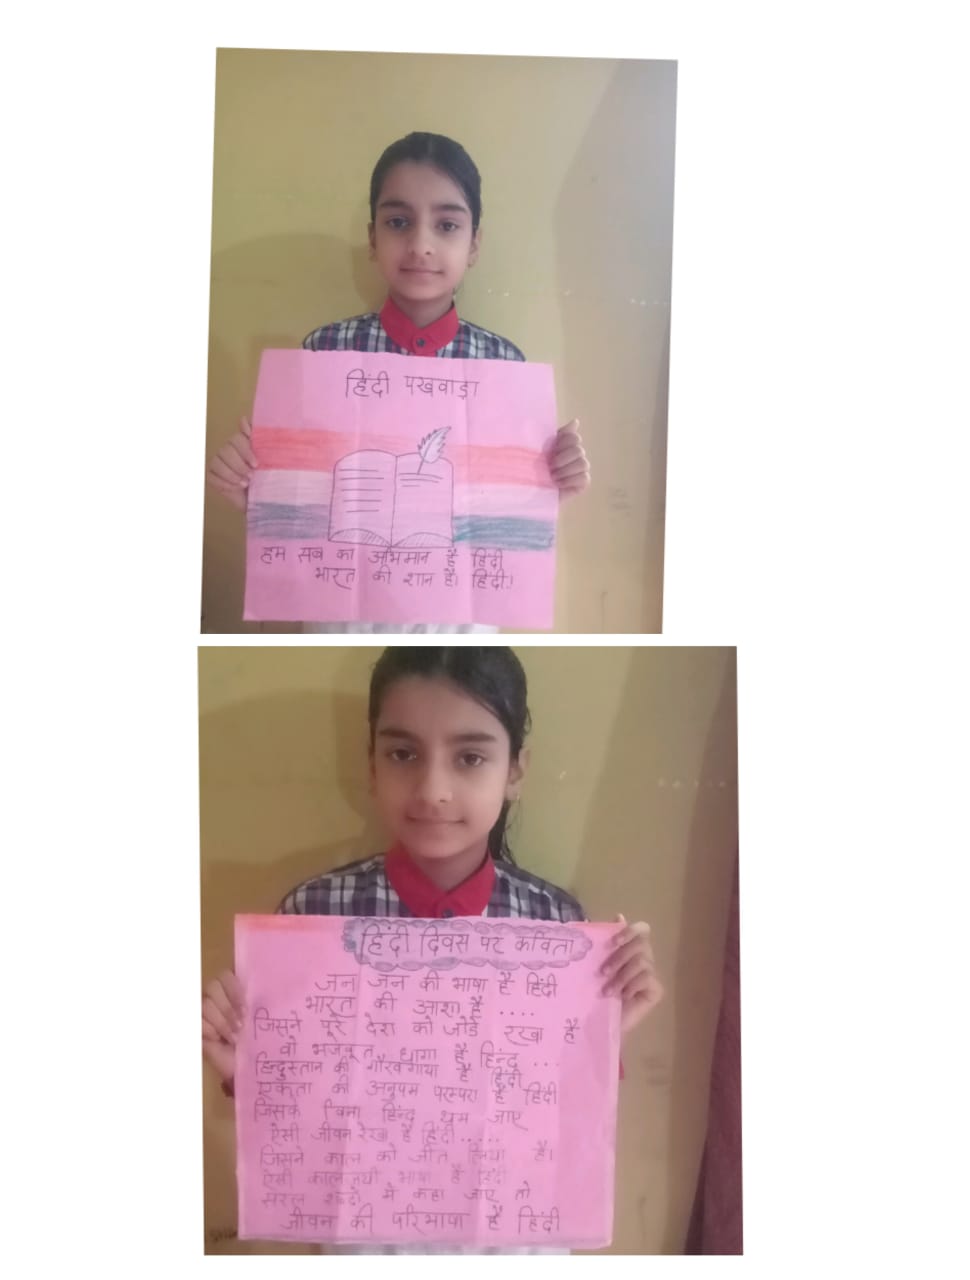 हिंदी पखवाड़ा
हम सब का अभिमान है हिंदी
भारत की शान है। हिंदी।
हिंदी दिवस पर कविता
जन जन की भाषा है हिंदी
भारत की आशा है ....
जिसने पूरे देश को जोडे रखा है
वो मजबूत धागा है हिन्द ...
हिन्दुस्तान की गौरवगाथा है हिंदी
एकता की अनुपम परम्परा है हिंदी
जिसके बिना हिन्द थम जाए
ऐसी जीवन रेखा है हिंदी.....
जिसने काल को जीत लिया है।
ऐसी कालजयी भाषा है हिंदी
सरल शब्दों में कहा जाए तो
जीवन की परिभाषा है हिंदी